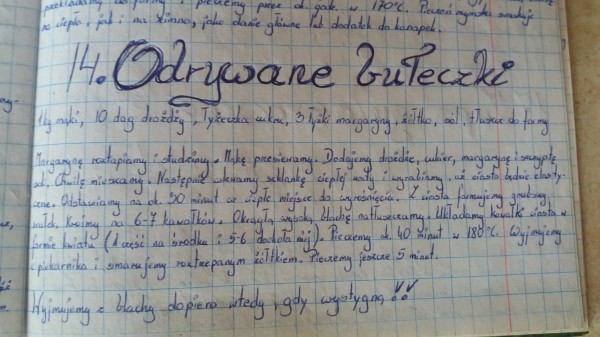 przekładamy do formy i pieczemy przez ok. godz. w 170°C. Pieczeń rzymska smakuje
na ciepło, jak i na zimno, jako danie główne lub dodatek do kanapek.
14. Odrywane bułeczki
1kg mąki, 10 dag drożdży, łyżeczka cukru, 3 łyżki margaryny, żółtko, sól, tłuszcz do formy
Margarynę roztapiamy i studzimy. Mąkę przesiewamy. Dodajemy drożdże, cukier, margarynę i szczyptę
soli. Chwilę mieszamy. Następnie wlewamy szklankę ciepłej wody i wyrabiamy, aż ciasto będzie elasty-
czne. Odstawiamy na ok. 30 minut w ciepłe miejsce do wyrośnięcia. Z ciasta formujemy gruby
wałek. Kroimy na 6-7 kawałków. Okrągłą wysoką blachę natłuszczamy. Układamy kawałki ciasta w
formie kwiatu (1 część na środku i 5-6 dookoła niej). Pieczemy ok. 40 minut w 180°C. Wyjmujemy
z piekarnika i smarujemy roztrzepanym żółtkiem. Pieczemy jeszcze 5 minut.
Wyjmujemy z blachy dopiero wtedy, gdy wystygną!!